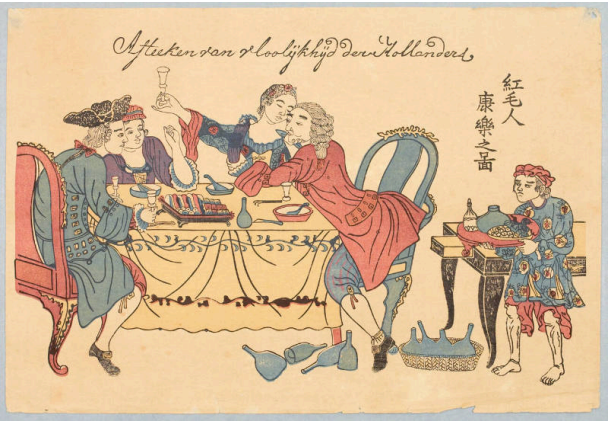 Afteeken van vloolÿkhÿd der Hollanders
紅毛人
康樂之啚